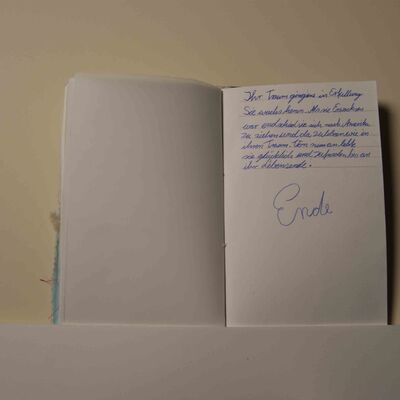 Ihr Traum ging in Erfüllung
Sie wuchs heran. Als sie Erwachsen
war endschied sie sich nach Amerika
zu ziehen und da zu leben wie in
ihrem Traum. Von nun an lebte
sie glücklich und zufrieden bis an
ihr Lebensende.
Ende